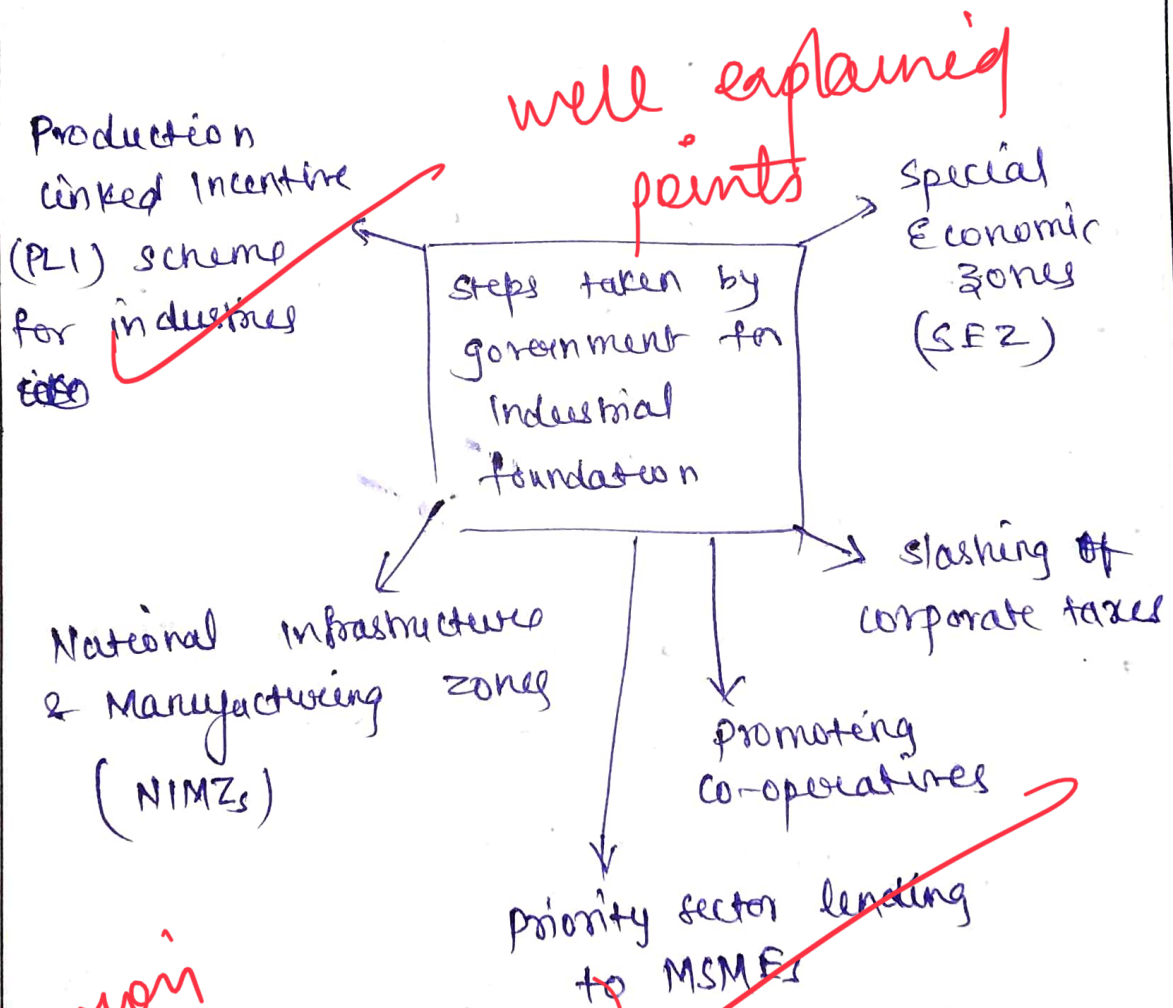 well explained
points
Production
Linked Incentive
(PLI) scheme
for industries
Special
Economic
Zones
(SEZ)
Steps taken by
government for
Industrial
foundation
slashing of
corporate taxes
National infrastructure
& Manufacturing zones
(NIMZs)
promoting
co-operatives
priority sector lending
to MSMEs